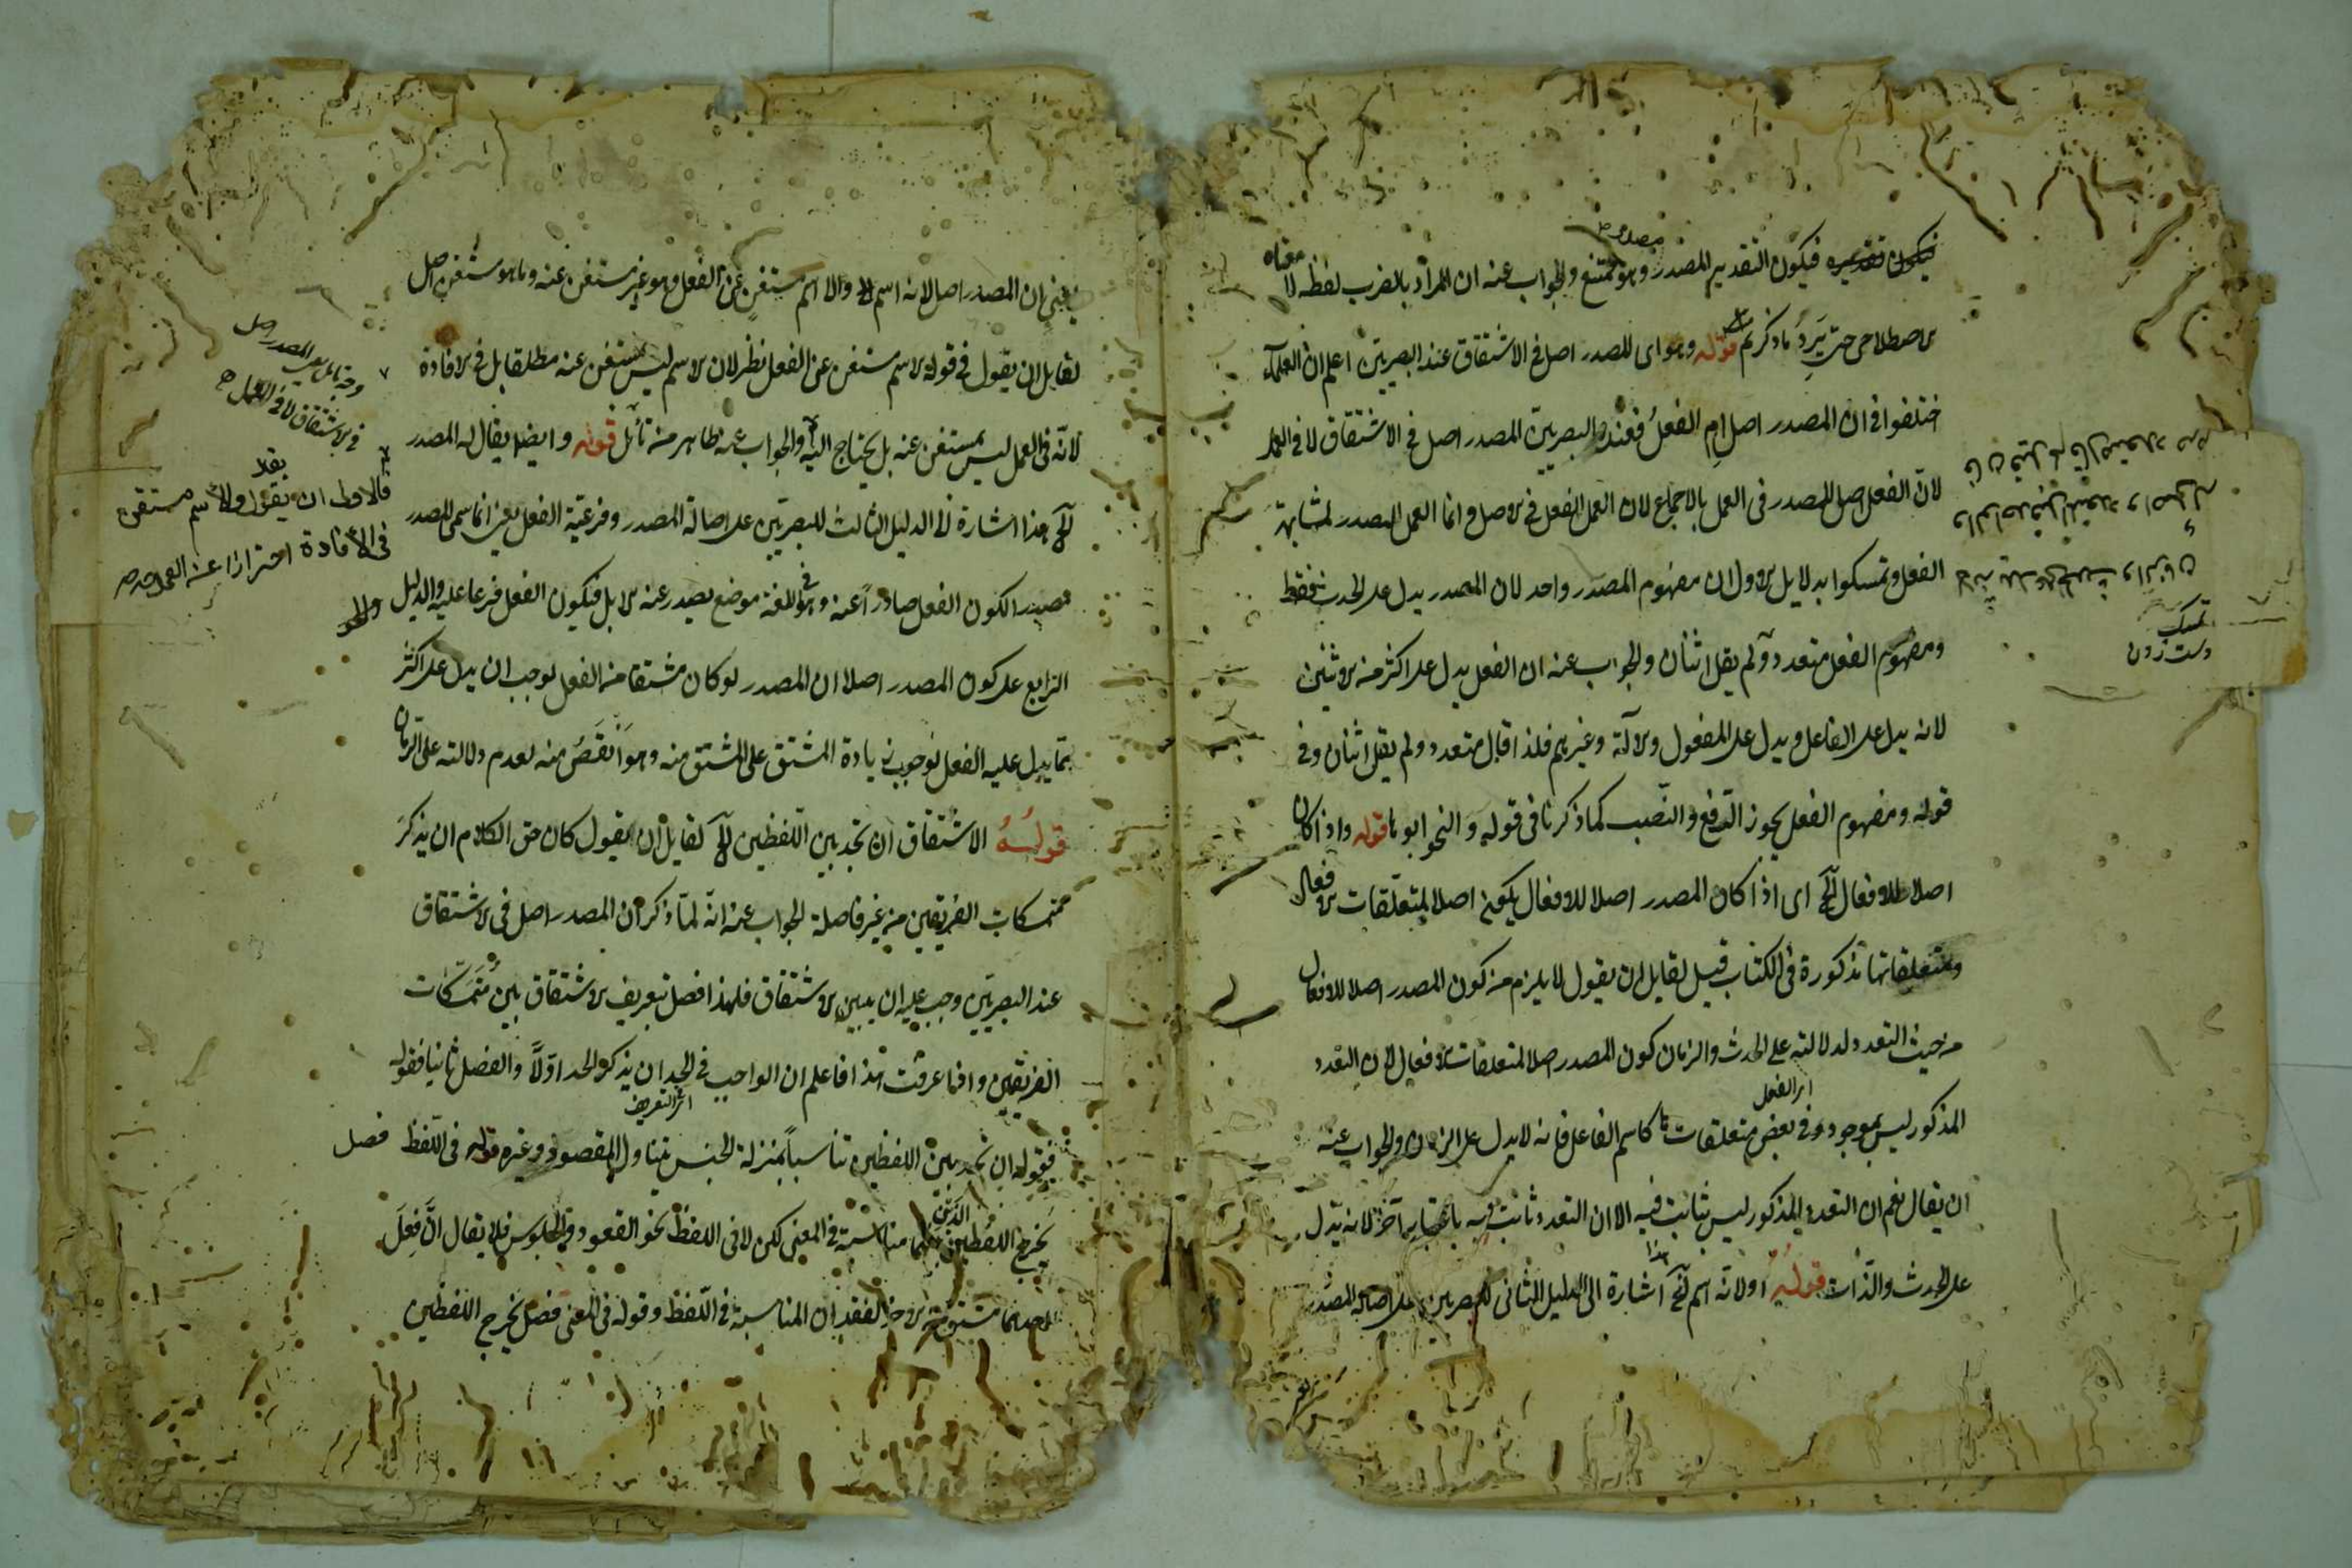 فيكون التقدير المصدر وهو ممتنع والجواب عنه ان المراد بالضرب لفظه لا معناه
الاصطلاحى حتى يَرِدَ ما ذكرتم قوله وهو اى المصدر اصل فى الاشتقاق عند البصريين اعلم ان العلماء
اختلفوا فى ان المصدر اصل امِ الفعلُ فعند البصريين المصدر اصل فى الاشتقاق لا فى العمل
لان الفعل اصل للمصدر فى العمل بالاجماع لان العمل للفعل فى الاصل وانما العمل للمصدر لمشابهة
الفعل وتمسكوا بدلايل الاول ان مفهوم المصدر واحد لان المصدر يدل على الحدث فقط
ومفهوم الفعل متعدد ولم يقل اثنان والجواب عنه ان الفعل يدل على اكثر من الاثنين
لانه يدل على الفاعل ويدل على المفعول والآلة وغيرهم فلذا قال متعدد ولم يقل اثنان وفى
قوله ومفهوم الفعل يجوز الرفع والنصب كما ذكرنا فى قوله والنحو ابوها قوله واذا كان
اصلا للافعال الخ اى اذا كان المصدر اصلا للافعال يكون اصلا لمتعلقات الافعال
ومتعلقاتها مذكورة فى الكتاب قيل لقايل ان يقول لا يلزم من كون المصدر اصلا للافعال
من حيث التعدد لدلالته على الحدث والزمان كون المصدر اصلا لمتعلقات الافعال لان التعدد
المذكور ليس بموجود فى بعض متعلقات كاسم الفاعل فانه لا يدل على الزمان والجواب عنه
اى الفعل
ان يقال نعم ان التعدد المذكور ليس بثابت فيه الا ان التعدد ثابت فيه باعتبار آخر لانه يدل
على الحدث والذات قوله اولانه اسم الخ هذا اشارة الى الدليل الثانى للبصريين على اصالة المصدر
تمسك
دست زدن
يعنى ان المصدر اصل لانه اسم والاسم مستغن عن الفعل وهو غير مستغن عنه وما هو مستغن اصل
لقايل ان يقول فى قوله الاسم مستغن عن الفعل نظر لان الاسم ليس بمستغن عنه مطلقا بل فى الافادة
لانه فى العمل ليس بمستغن عنه بل يحتاج اليه والجواب عنه ظاهر منه تأمل قوله وايضا يقال له المصدر
الخ هذا اشارة الى الدليل الثالث للبصريين على اصالة المصدر وفرعية الفعل يعنى انما سمى المصدر
مصدرا لكون الفعل صادراً عنه وهو فى اللغة موضع يصدر عنه الابل فيكون الفعل فرعا عليه والدليل
الرابع على كون المصدر اصلا ان المصدر لو كان مشتقا من الفعل لوجب ان يدل على اكثر
مما يدل عليه الفعل لوجوب زيادة المشتق على المشتق منه وهو اَنقَصُ منه لعدم دلالته على الزمان
قولُهُ الاشتقاق ان تجد بين اللفظين الخ لقايل ان يقول كان حق الكلام ان يذكرَ
متمسكات الفريقين من غير فاصلة الجواب عنه انه لمّا ذكر ان المصدر اصل فى الاشتقاق
عند البصريين وجب عليه ان يبين الاشتقاق فلهذا فصل تعريف الاشتقاق بين مُتَمَسّكات
الفريقين واذا عرفت هذا فاعلم ان الواجب فى الحد ان يذكر الحد اوّلاً والفصل ثانيا فقوله
اى التعريف
فقوله ان تجد بين اللفظين تناسباً بمنزلة الجنس يتناول المقصود وغيره قوله فى اللفظ فصل
يخرج اللفظين الذين بينهما مناسبة فى المعنى لكن لا فى اللفظ نحو القعود والجلوس فلا يقال انّ فِعلَ
احدهما مشتق من الاخر لفقدان المناسبة فى اللفظ وقوله فى المعنى فصل يخرج اللفظين
فى الاشتقاق لا فى العمل
فالاولى ان يقول والاسم مستغن
فى الافادة احترازا عنه العمل